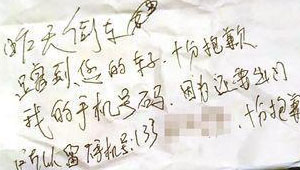 昨天倒车
到您的车子.十分抱歉
我的手机号码.因为还要出门
所以留手机号:133 .十分抱歉